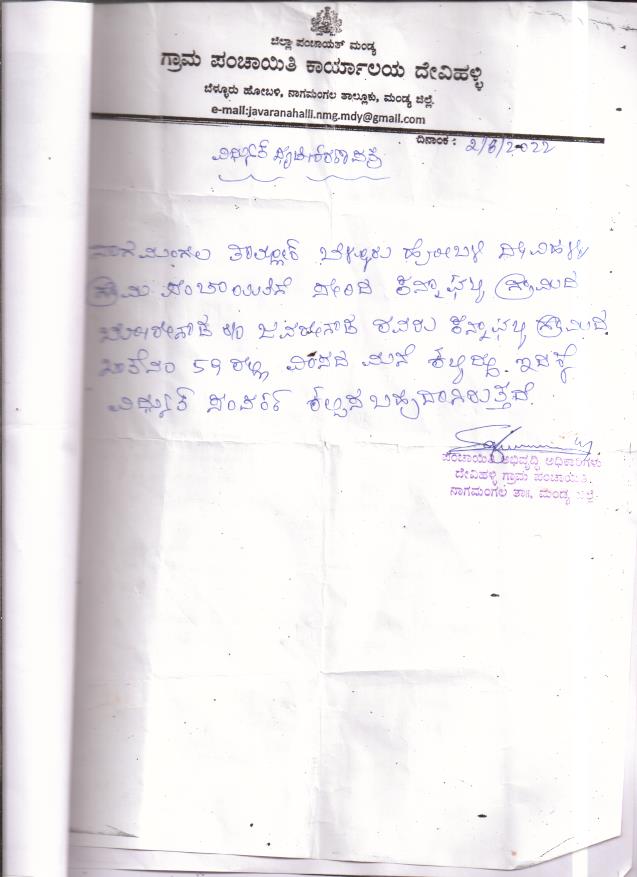 ಜಿಲ್ಲಾ ಪಂಚಾಯತ್ ಮಂಡ್ಯ
ಗ್ರಾಮ ಪಂಚಾಯಿತಿ ಕಾರ್ಯಾಲಯ ದೇವಿಹಳ್ಳಿ
ಬೆಳ್ಳೂರು ಹೋಬಳಿ, ನಾಗಮಂಗಲ ತಾಲ್ಲೂಕು, ಮಂಡ್ಯ ಜಿಲ್ಲೆ.
e-mail:javaranahalli.nmg.mdy@gmail.com
ದಿನಾಂಕ : 2/6/2022
ನಾಗಮಂಗಲ ತಾಲ್ಲೂಕ್ ಬೆಳ್ಳೂರು ಹೋಬಳಿ ದೇವಿಹಳ್ಳಿ
ಗ್ರಾಮ ಪಂಚಾಯಿತಿಗೆ ಸೇರಿದ ಗ್ರಾಮದ
S/o ಜವರೇಗೌಡ ರವರು ಗ್ರಾಮದ
59 ರಲ್ಲಿ ವಾಸದ ಮನೆ ಇದಕ್ಕೆ
ವಿದ್ಯುತ್ ಸಂಪರ್ಕ ಕಲ್ಪಿಸ ಬಹುದಾಗಿರುತ್ತದೆ.
ಪಂಚಾಯಿತಿ ಅಭಿವೃದ್ಧಿ ಅಧಿಕಾರಿಗಳು
ದೇವಿಹಳ್ಳಿ ಗ್ರಾಮ ಪಂಚಾಯಿತಿ.
ನಾಗಮಂಗಲ ತಾಃ, ಮಂಡ್ಯ ಜಿಲ್ಲೆ.